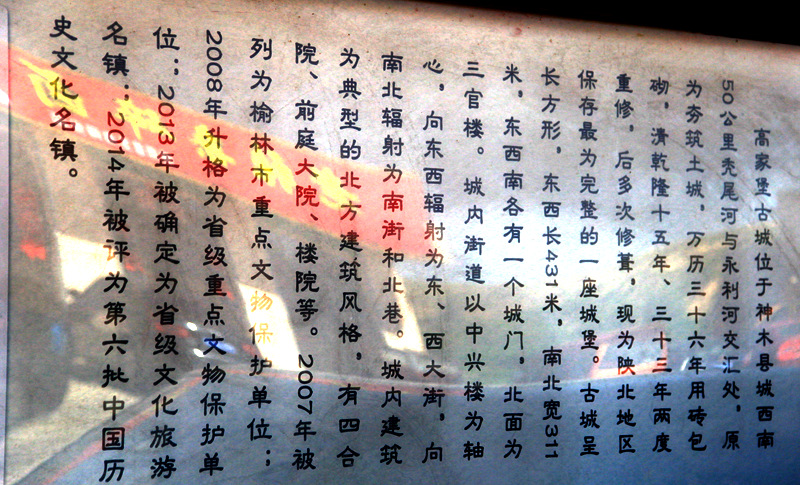 高家堡古城位于神木县城西南
50公里秃尾河与永利河交汇处，原
为夯筑土城，万历三十六年用砖包
砌，清乾隆十五年、三十三年两度
重修，后多次修葺，现为陕北地区
保存最为完整的一座城堡。古城呈
长方形，东西长431米，南北宽311
米，东西南各有一个城门，北面为
三官楼。城内街道以中兴楼为轴
心，向东西辐射为东、西大街，向
南北辐射为南街和北巷。城内建筑
为典型的北方建筑风格，有四合
院、前庭大院、楼院等。2007年被
列为榆林市重点文物保护单位；
2008年升格为省级重点文物保护单
位；2013年被确定为省级文化旅游
名镇；2014年被评为第六批中国历
史文化名镇。